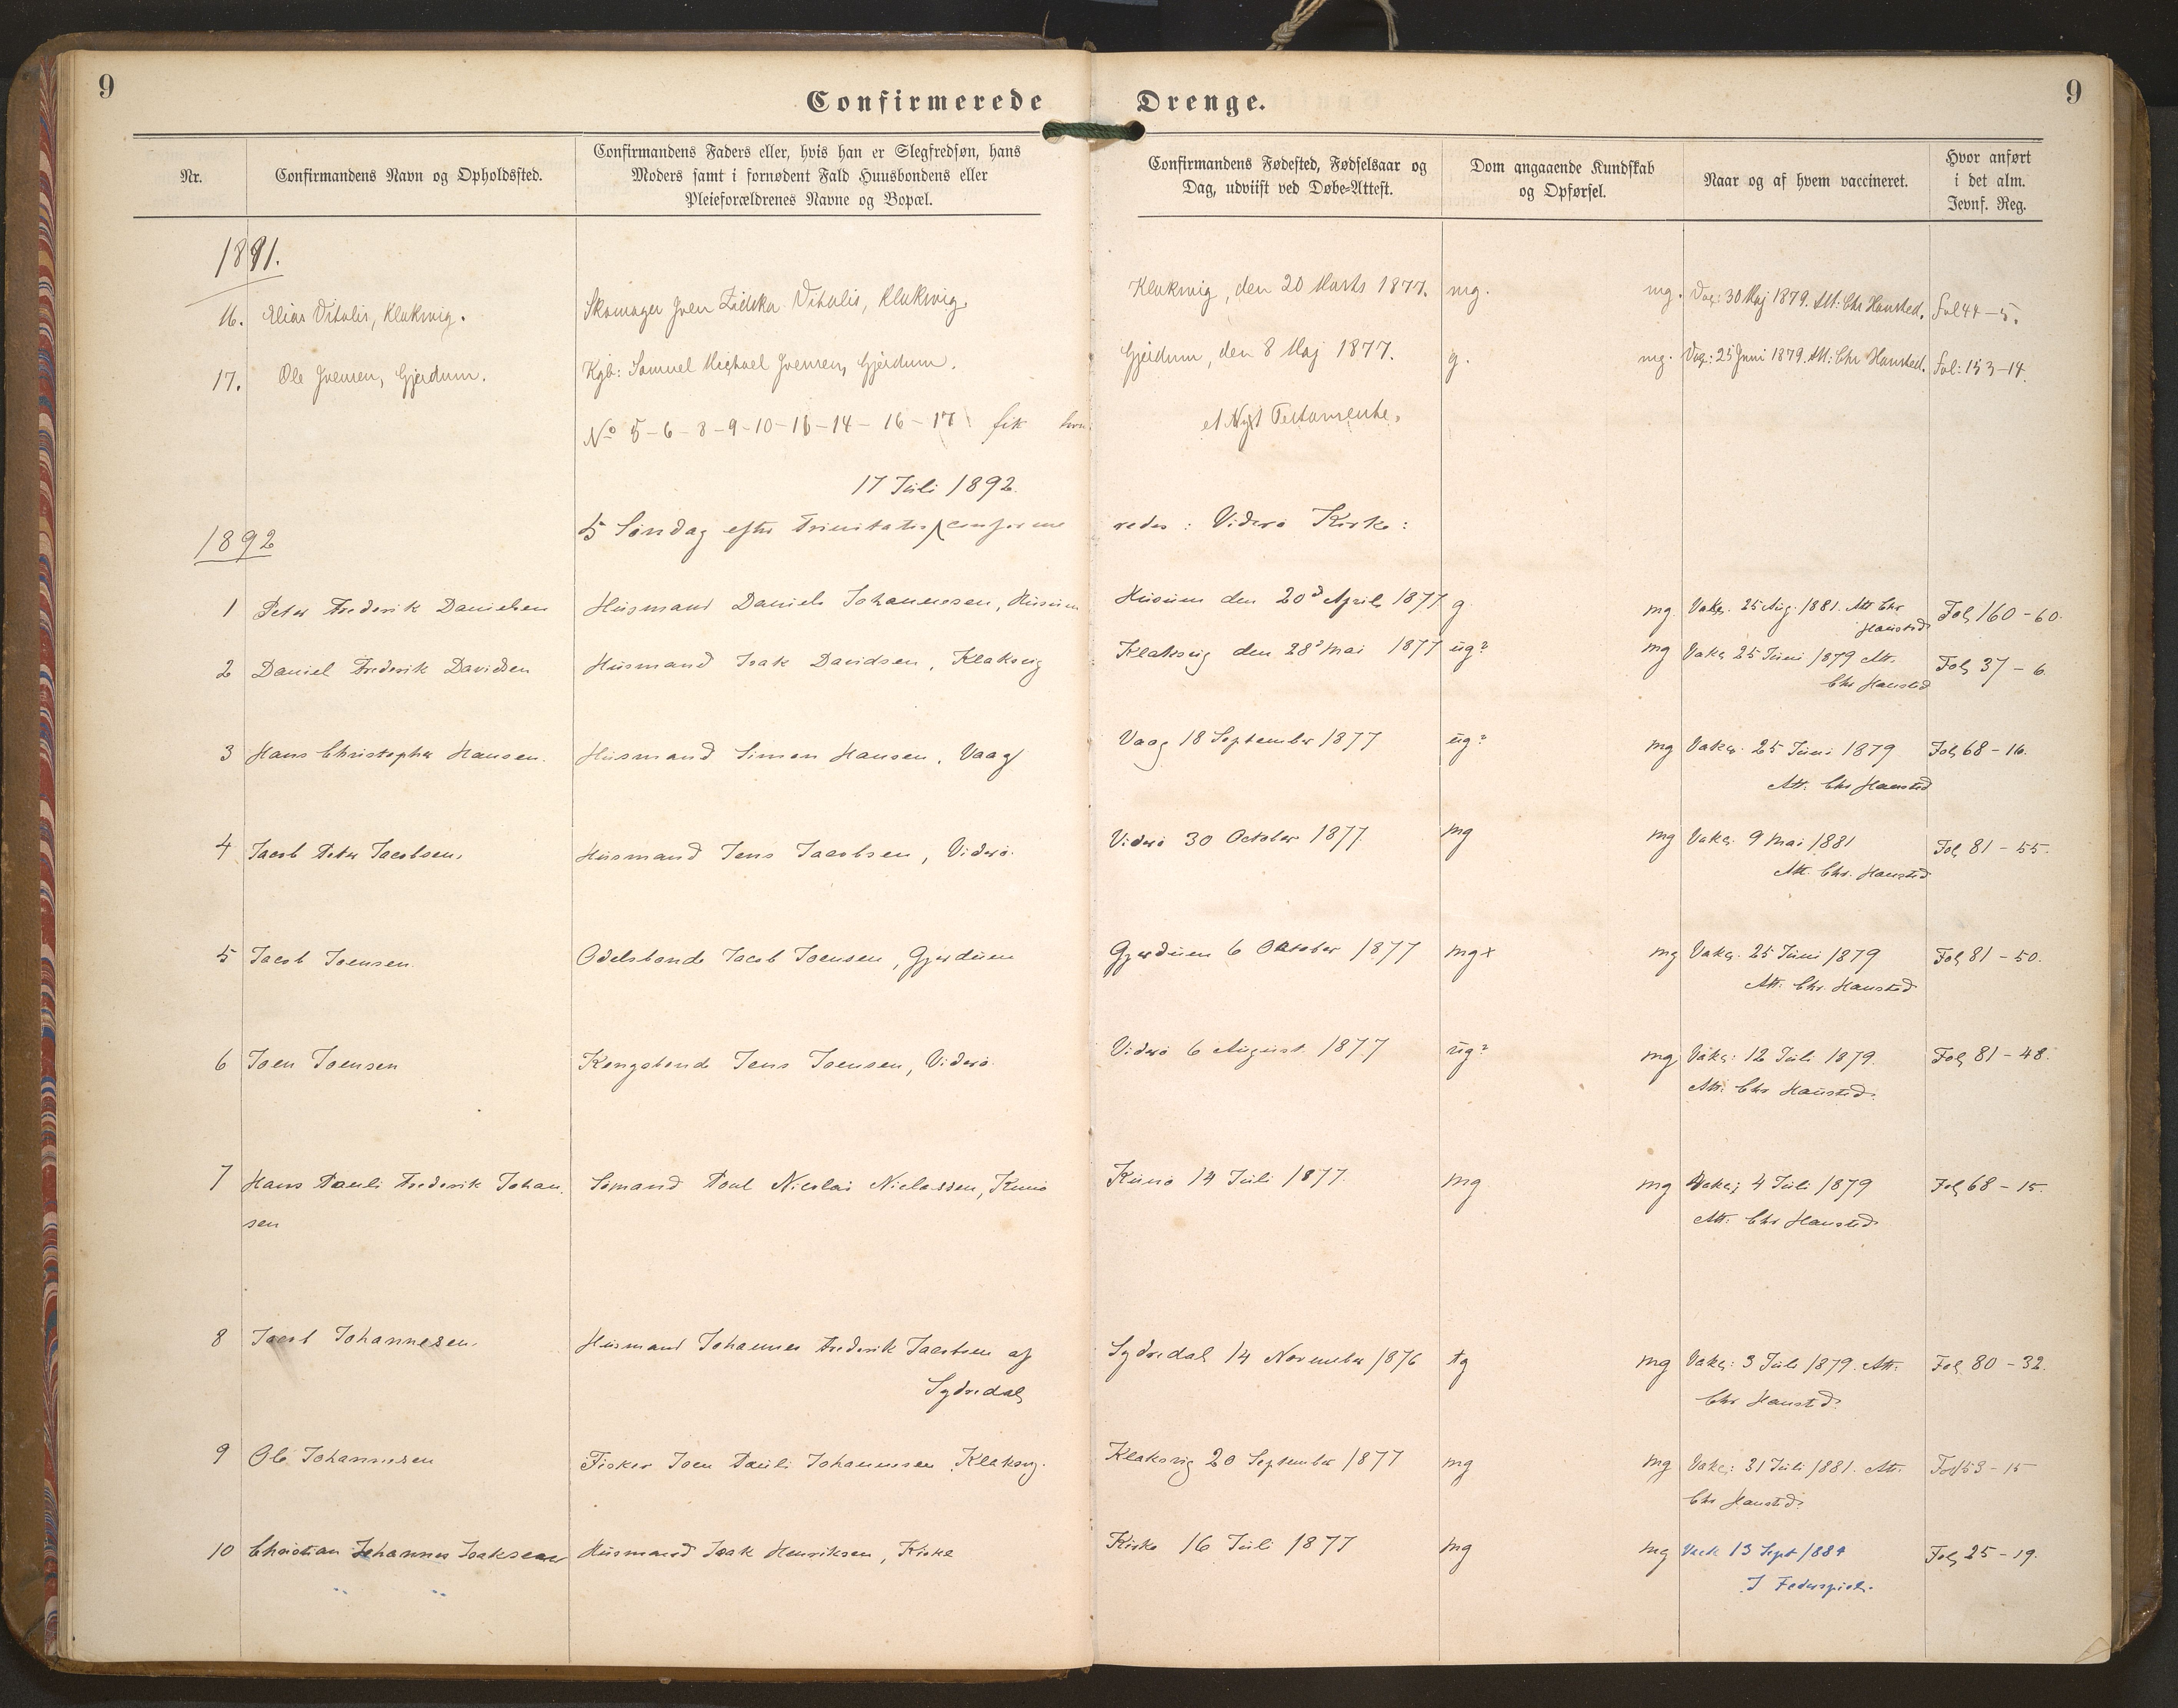 9
Confirmerede Drenge.
9
Nr.
Confirmandens Navn og Opholdssted.
Confirmandens Faders eller, hvis han er Slegfredsøn, hans
Moders samt i fornødent Fald Huusbondens eller
Pleieforældrenes Navne og Bopæl.
Confirmandens Fødested, Fødselsaar og
Dag, udviist ved Døbe-Attest.
Dom angaaende Kundskab
og Opførsel.
Naar og af hvem vaccineret.
Hvor anført
i det alm.
Jevnf. Reg.
1891.
16. Elias Vitalis, Klakvig. Skomager Joen Vitalis, Klakvig. Klakvig, den 20 Marts 1877. mg. mg. Vac: 30 Maj 1879. Att: Chr Hansted. fol 44-5.
17. Ole Joensen, Gjerdum. Kgb: Samuel Michael Joensen, Gjerdum. Gjerdum, den 8 Maj 1877. g. mg. Vac: 25 Juni 1879. Att: Chr Hansted. fol: 153-14.
No 5-6-8-9-10-11-14-16-17 fik hver et Nyt Testamente.
17 Juli 1892.
1892
5 Søndag efter Trinitatis confirmeredes i Viderø Kirke:
1 Peter Frederik Danielsen Husmand Daniels Johannesen, Husum Husum den 20d April 1877 g. mg. Vakc. 25 Aug. 1881. Att Chr Fol 160-60.
Hansted
2 Daniel Frederik Davidsen Husmand Isak Davidsen, Klaksvig Klaksvig den 28d Mai 1877 ug? mg Vakc 25 Juni 1879 Att. Fol 37-6.
Chr Hansted
3 Hans Christopher Hansen. Husmand Simon Hansen, Vaag Vaag 18 September 1877 ug? mg Vakc. 25 Juni 1879 Fol 68-16.
Att. Chr Hansted
4 Jacob Peter Jacobsen. Husmand Jens Jacobsen, Viderø. Viderø 30 October 1877. mg mg Vakc. 9 Mai 1881 Fol 81-55.
Att. Chr. Hansted
5 Jacob Joensen. Odelsbonde Jacob Joensen, Gjerdum Gjerdum 6 Oktober 1877 mgx mg Vakc. 25 Juni 1879 Fol 81-50.
Att. Chr. Hansted
6 Joen Joensen Kongsbonde Jens Joensen, Viderø. Viderø 6 August 1877 ug? mg Vakc: 12 Juli 1879. Fol 81-48.
Att: Chr Hansted.
7 Hans Pauli Frederik Johan- Sømand Poul Nicolai Niclassen, Kunø Kunø 14 Juli 1877. mg mg Vakc; 4 Juli 1879 Fol 68-15.
sen Att. Chr Hansted
8 Jacob Johannesen. Husmand Johannes Frederik Jacobsen af Sydredal 14 November 1876 tg mg Vakc: 3 Juli 1879. Att: Fol 80-32.
Sydredal Chr Hansted.
9 Ole Johannesen Fisker Joen Pauli Johannesen Klaksvig. Klaksvig 20 September 1877 mg mg Vakc: 31 Juli 1881. Att. Fol 153-15
Chr Hansted.
10 Christian Johannes Isaksen Husmand Isak Henriksen, Kirke Kirke 16 Juli 1877 mg mg Vack 13 Sept 1884 Fol 25-19.
" " J Federspiel.